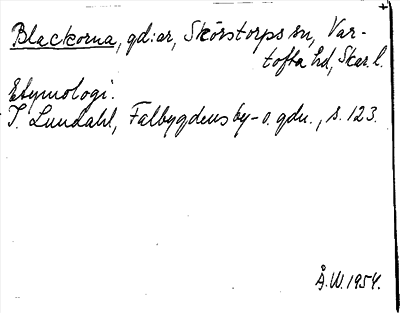 Blackorna, gd:ar, Skörstorps sn, Var-
tofta hd, Skar. l.
Etymologi.
I. Lundahl, Falbygdens by- o. gdn., s. 123.
Å.W. 1954.